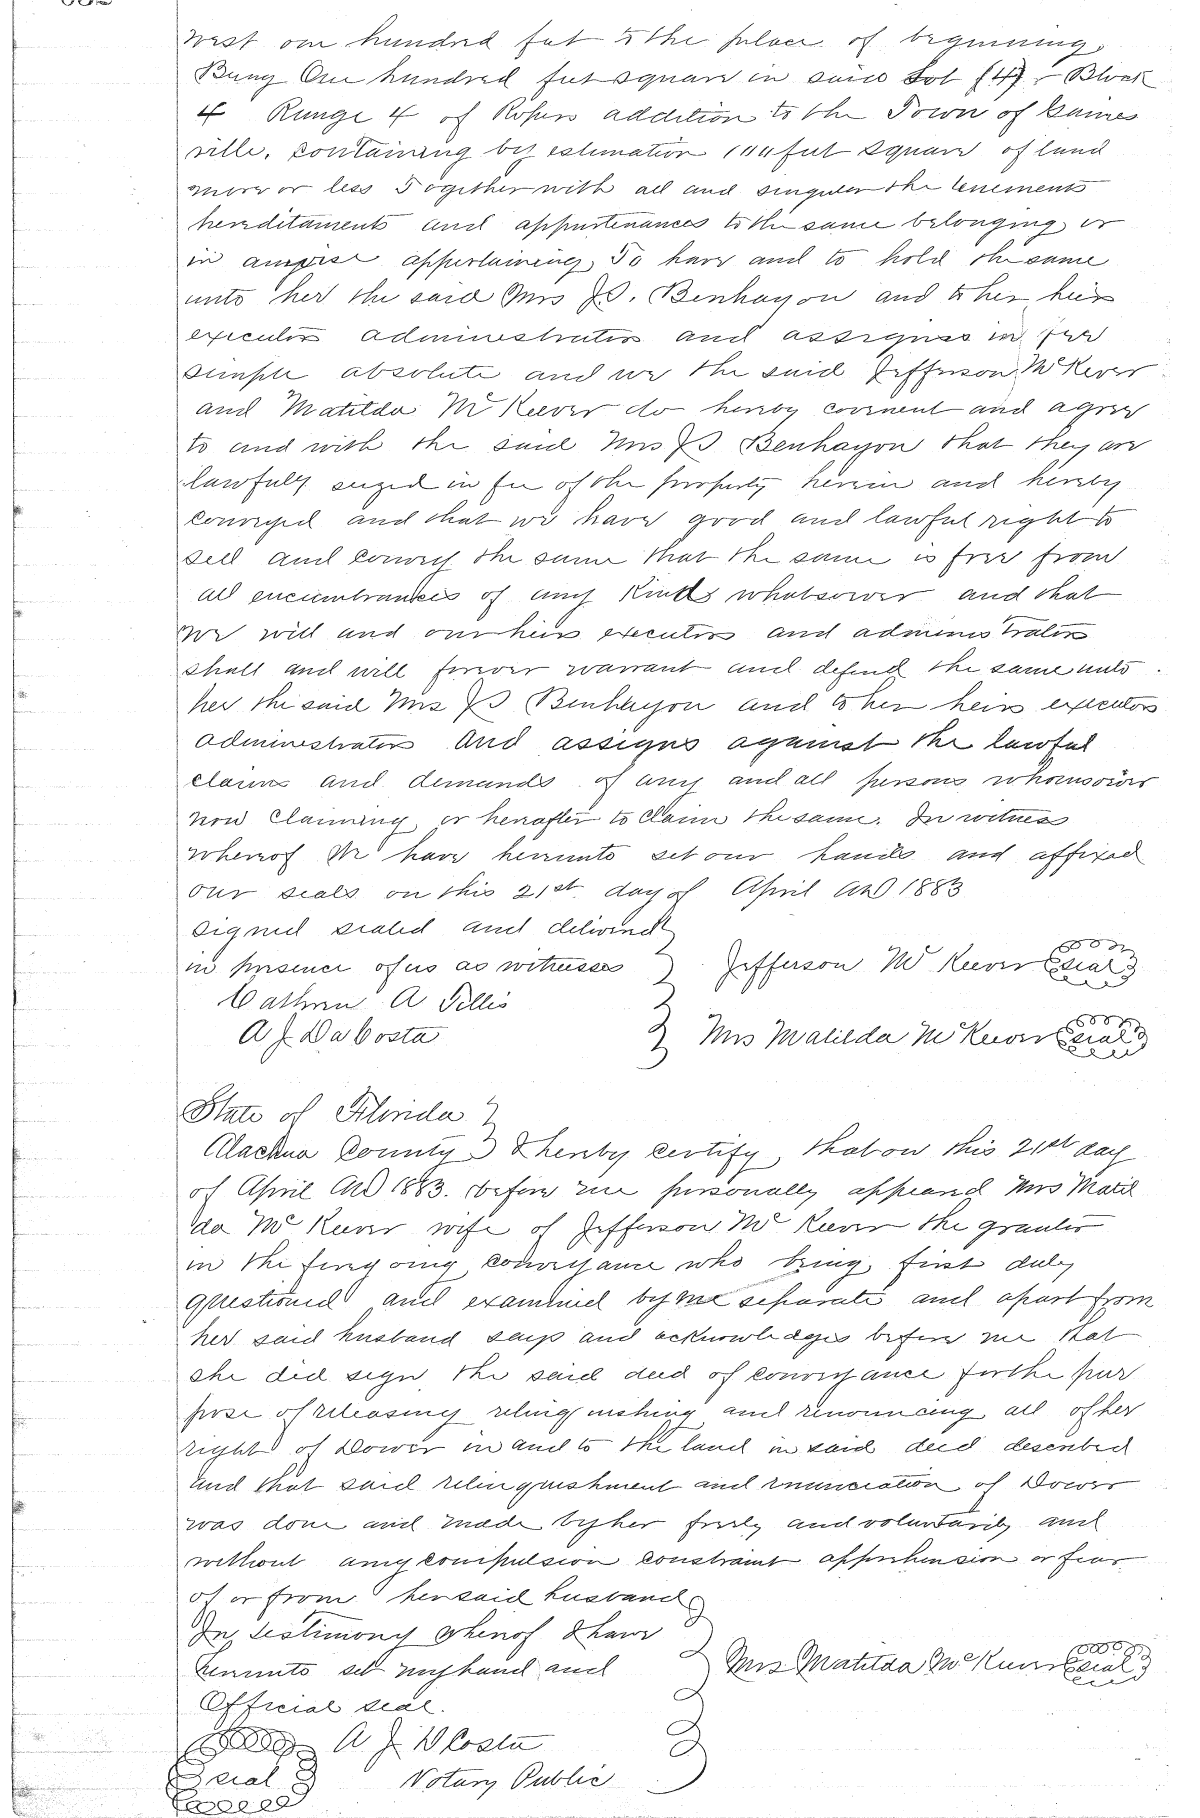 West one hundred feet to the place of beginning,
Being One hundred feet square in said Lot (4) - Block
4 Range 4 of Ropers addition to the Town of Gaines
ville, containing by estimation feet square of land
more or less Together with all and singular the tenements
hereditaments and appurtenances to the same belonging or
in anywise appertaining, To have and to hold the same
unto her the said Mrs J.S. Benhayon and to her heirs
executors administrators and assignes in fee
simple absolute and we the said Jefferson McKeever
and Matilda McKeever do hereby covenent and agree
to and with the said Mrs J S Benhayon that they are
lawfully seized in fee of the property herein and hereby
conveyed and that we have good and lawful right to
sell and convey the same that the same is free from
all encumbrances of any Kinds whatsoever and that
we will and our heirs executors and administrators
shall and will forever warrant and defend the same unto
her the said Mrs J S Benhayon and to her heirs executors
administrators and assigns against the lawful
claims and demands of any and all persons whomsoever
now claiming or hereafter to claim the same. In witness
whereof We have hereunto set our hands and affixed
our seals on this 21st day of April AD 1883
signed sealed and delivered
in presence of us as witnesses } Jefferson McKeever seal
Cathren A Tillis
A J DaCosta } Mrs Matilda McKeever seal
State of Florida }
Alachua County } I hereby certify, that on this 21st day
of April AD 1883. before me personally appeared Mrs Matil
da McKeever wife of Jefferson McKeever the grantor
in the foregoing conveyance who being first duly
questioned and examined by me separate and apart from
her said husband says and acknowledges before me that
she did sign the said deed of conveyance for the pur
pose of releasing relinquishing and renouncing all of her
right of Dower in and to the land in said deed described
and that said relinquishment and renunciation of Dower
was done and made by her freely and voluntarily and
without any compulsion constraint apprehension or fear
of or from her said husband
In testimony whereof I have
hereunto set my hand and } Mrs Matilda McKeever seal
Official seal.
A J DCosta
seal Notary Public